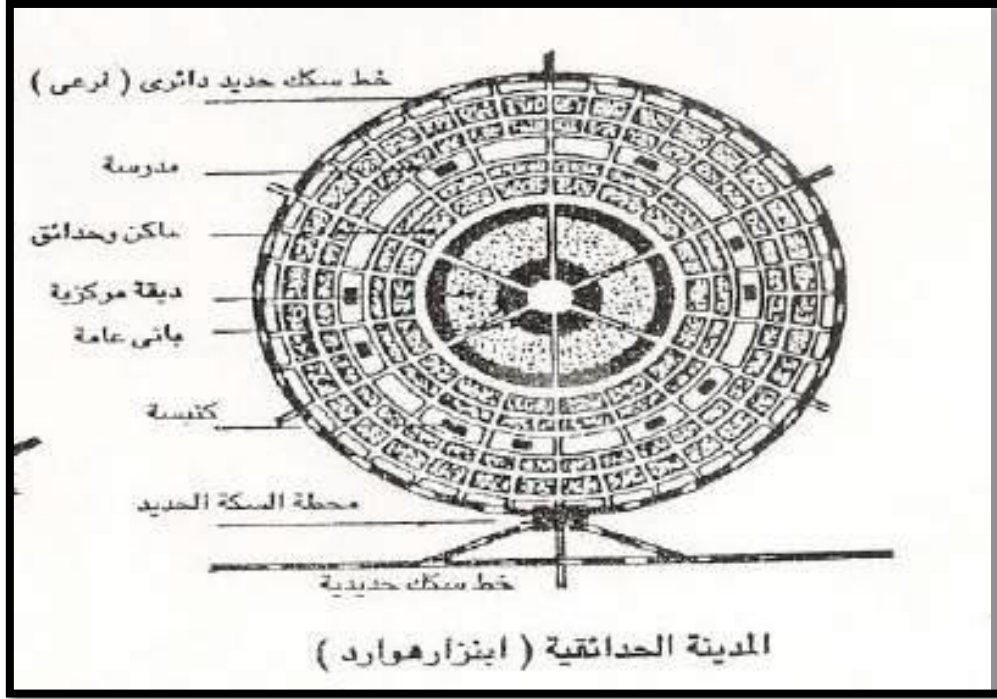 خط سكك حديد دائرى ( فرعى )
مدرسة
ماكن وحدائق
ديقة مركزية
بانى عامة
كنيسة
محطة السكة الحديد
خط سكك حديدية
المدينة الحدائقية ( ابنزارهوارد )